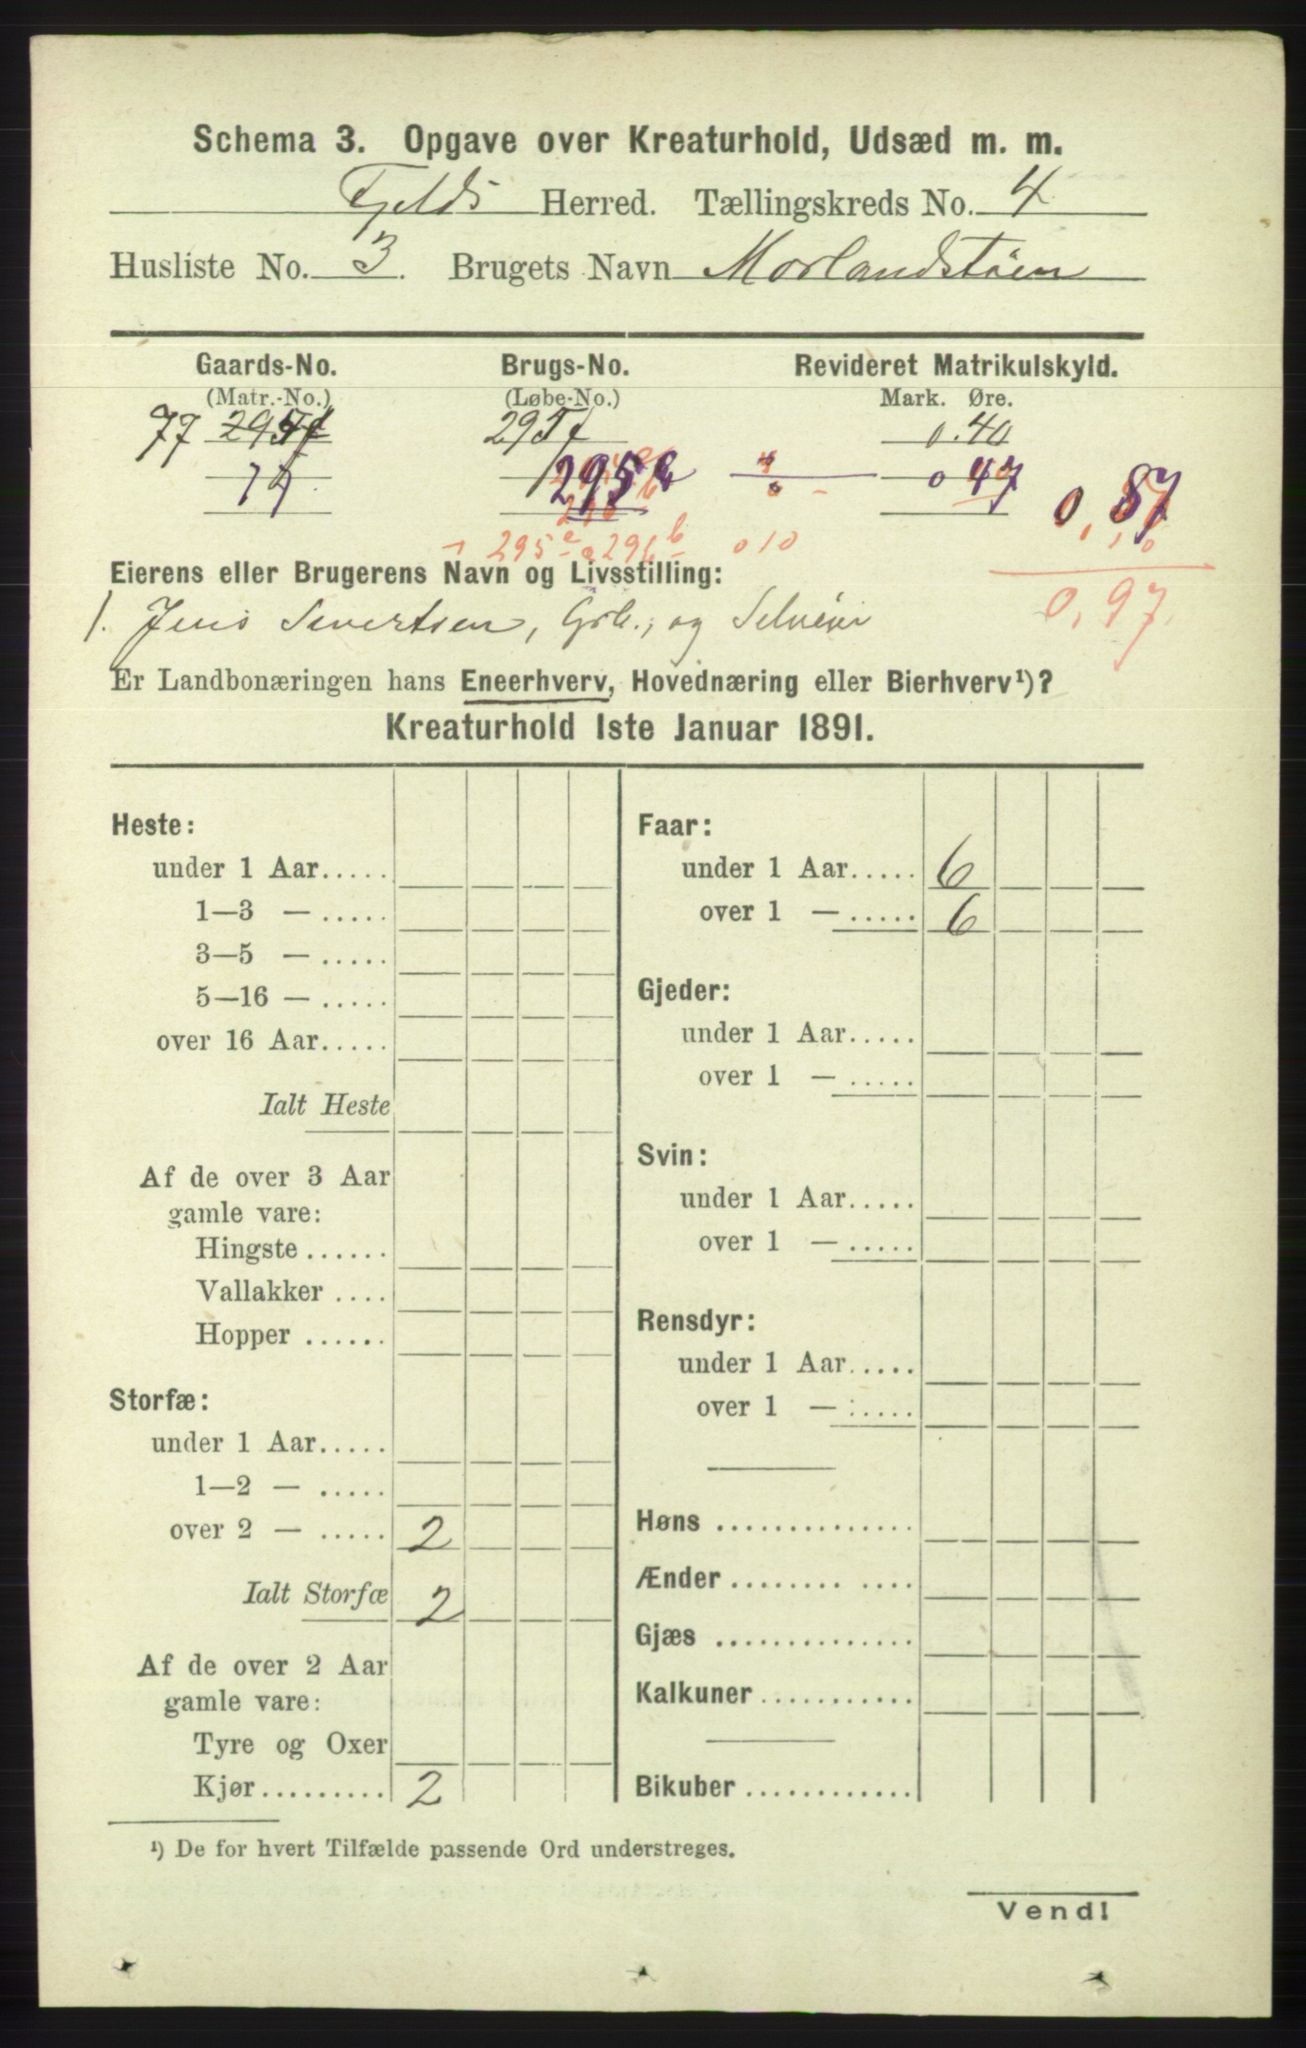 Schema 3. Opgave over Kreaturhold, Udsæd m. m.
Fjelds Herred. Tællingskreds No. 4
Husliste No. 3. Brugets Navn Morlandstøen
Gaards-No. Brugs-No. Revideret Matrikulskyld.
(Matr.-No.) (Løbe-No.) Mark. Øre.
77 295f 295f 0.40
295 0 47 0,87
295 e 296 b 0 10
Eierens eller Brugerens Navn og Livsstilling: 0,97
1. Jens Sivertsen, Grb., og Selveier
Er Landbonæringen hans Eneerhverv, Hovednæring eller Bierhverv¹)?
Kreaturhold 1ste Januar 1891.
Heste:
under 1 Aar.....
1—3 — .....
3—5 — .....
5—16 — .....
over 16 Aar.....
Ialt Heste
Af de over 3 Aar
gamle vare:
Hingste ......
Vallakker ....
Hopper ......
Storfæ:
under 1 Aar.....
1—2 — .....
over 2 — ..... 2
Ialt Storfæ 2
Af de over 2 Aar
gamle vare:
Tyre og Oxer
Kjør......... 2
Faar:
under 1 Aar..... 6
over 1 — ..... 6
Gjeder:
under 1 Aar.....
over 1 — .....
Svin:
under 1 Aar.....
over 1 — .....
Rensdyr:
under 1 Aar.....
over 1 — .....
Høns ..............
Ænder ........ ....
Gjæs ..............
Kalkuner...........
Bikuber ............
¹) De for hvert Tilfælde passende Ord understreges.
Vend!